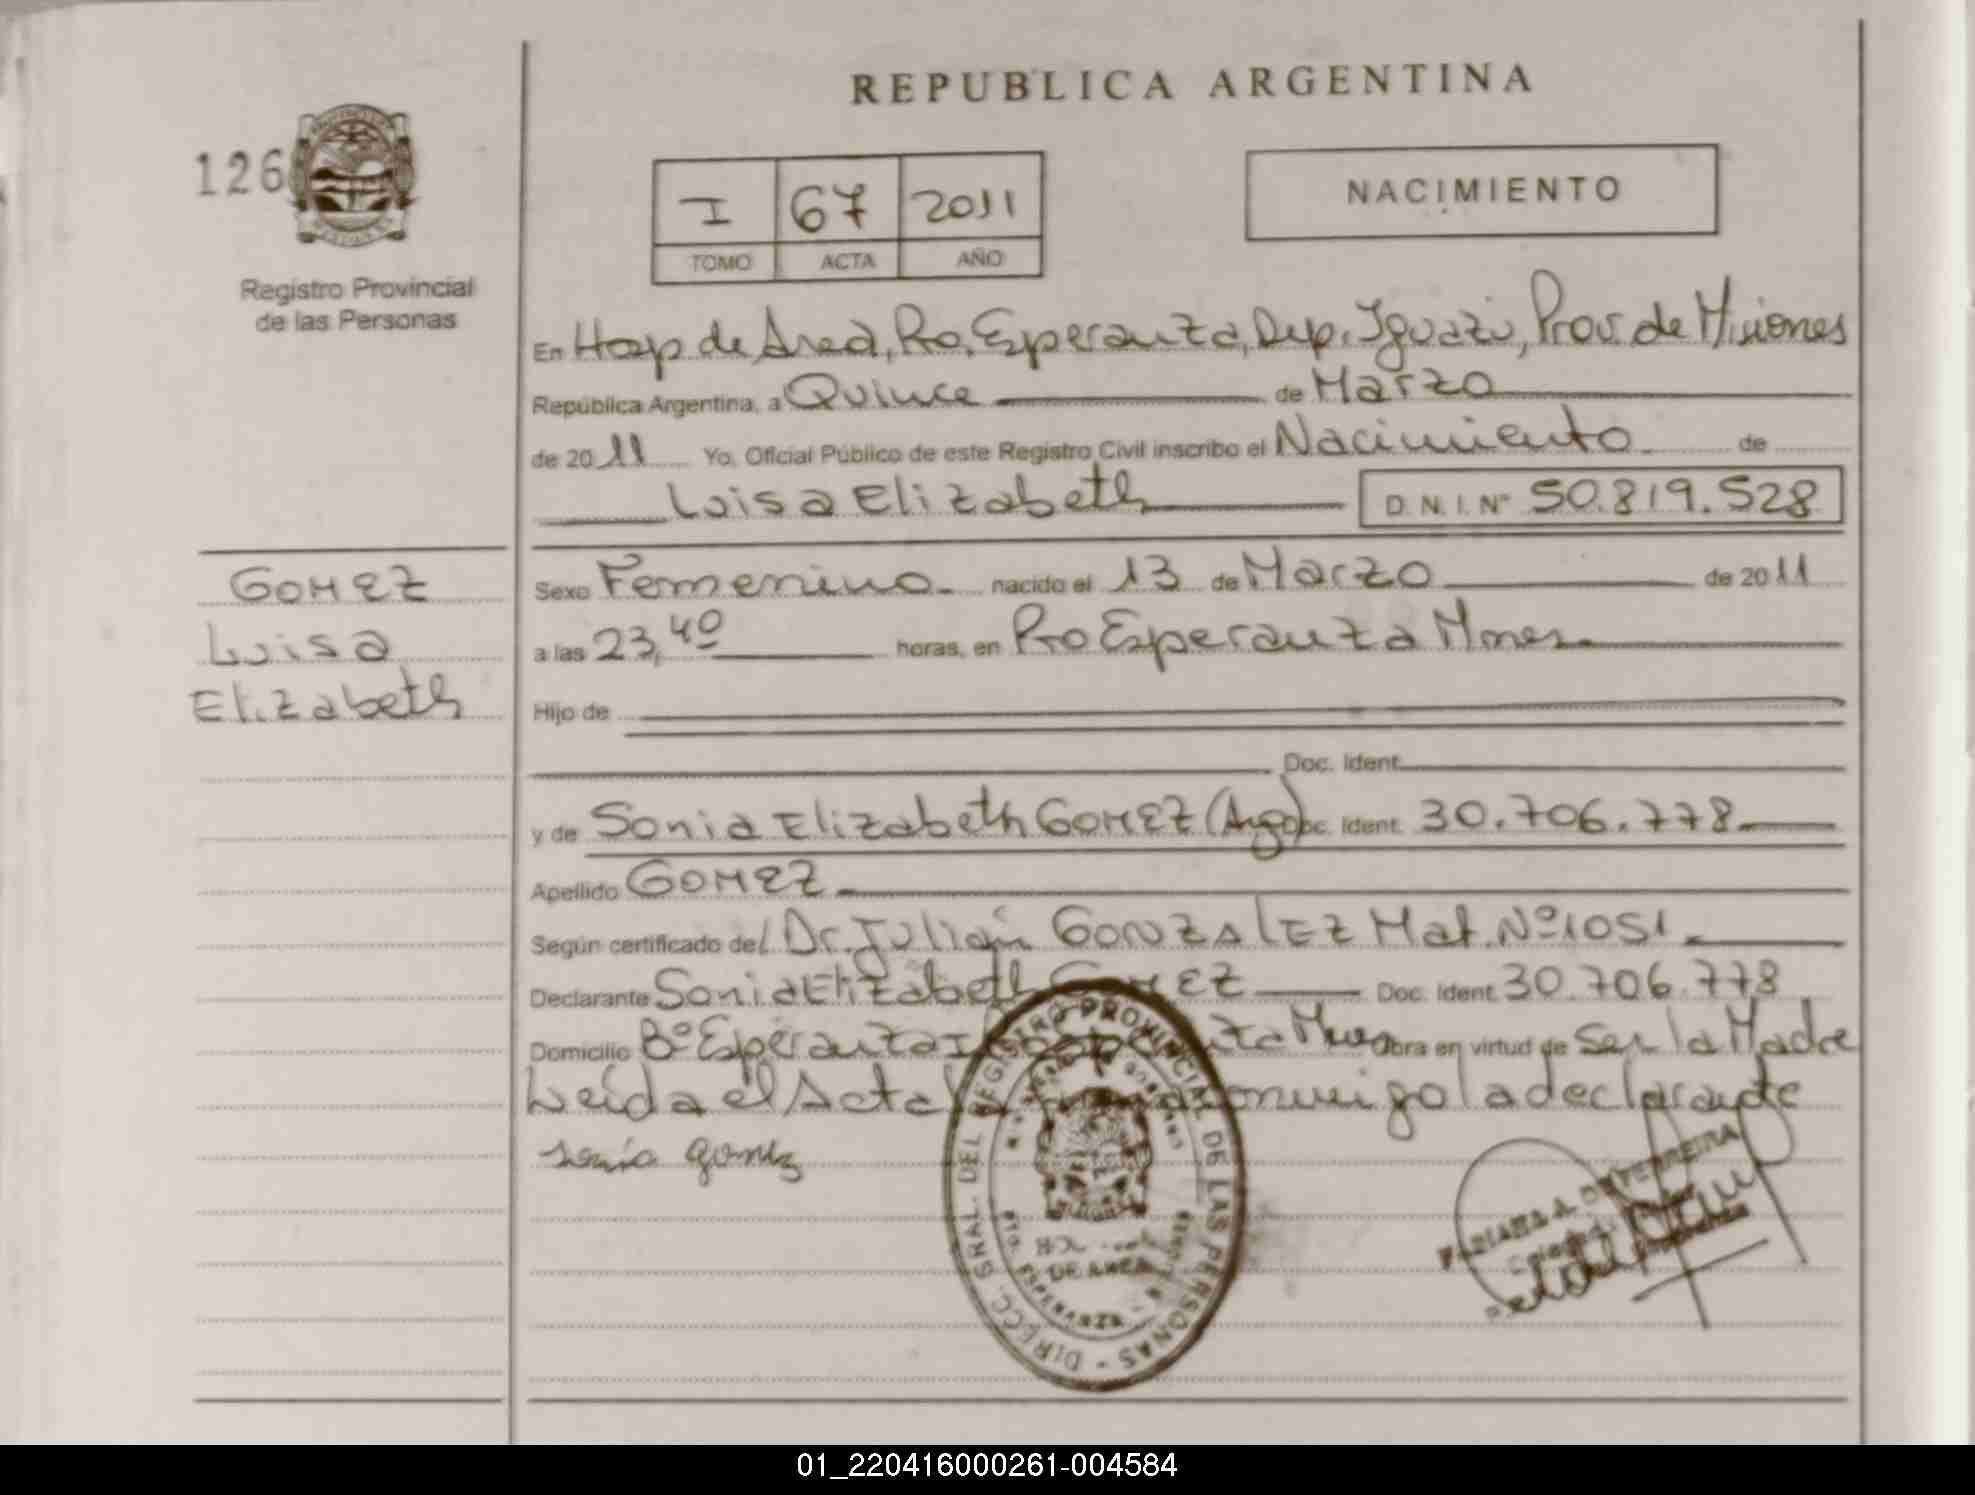 REPUBLICA ARGENTINA
126
I 67 2011
TOMO ACTA AÑO
NACIMIENTO
Registro Provincial
de las Personas
En Hosp de Area, Pto. Esperanza, Dep. Iguazu, Prov. de Misiones
República Argentina, a Quince de Marzo
de 2011 Yo, Oficial Público de este Registro Civil inscribo el Nacimiento de
Luisa Elizabeth D.N.I. Nº 50.819.528
GOMEZ
Luisa
Elizabeth
Sexo Femenino nacido el 13 de Marzo de 2011
a las 23,40 horas, en Pto Esperanza Mnes
Hijo de
Doc. Ident.
y de Sonia Elizabeth GOMEZ (Arg) Doc. Ident. 30.706.778
Apellido GOMEZ
Según certificado del Dr. Julián GONZALEZ Mat. Nº 1051
Declarante Sonia Elizabeth GOMEZ Doc. Ident. 30.706.778
Domicilio Bº Esperanza I Obra en virtud de Ser la Madre
Leída el Acta la declarante
sonia gomez
DIRECC. GRAL. DEL REGISTRO PROVINCIAL DE LAS PERSONAS
DE AREA
PTO. ESPERANZA
01_220416000261-004584